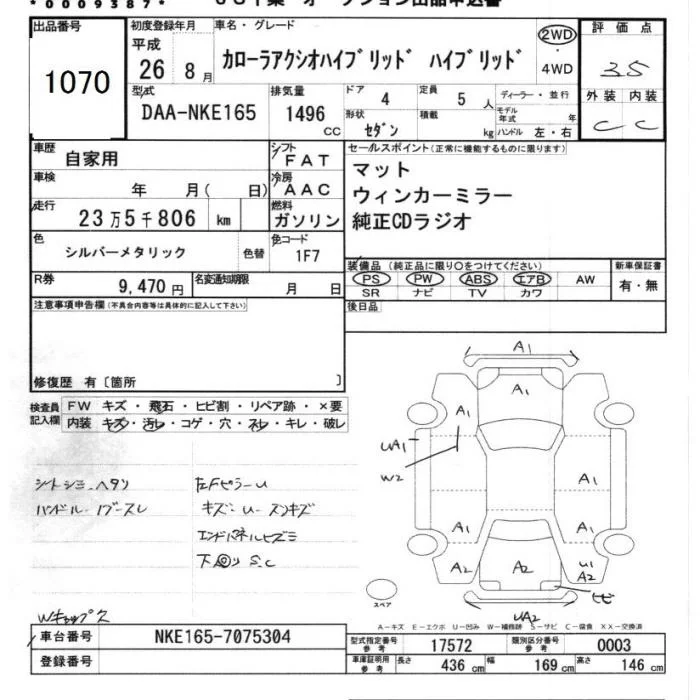 *0009387*
出品番号
1070
初度登録年月
平成
26年 8月
車名・グレード
カローラアクシオハイブリッド ハイブリッド
2WD
・
4WD
評価点
3.5
外装 内装
C C
型式
DAA-NKE165
排気量
1496
CC
ドア
4
定員
5 人
ディーラー・並行
モデル年式 年
形状
セダン
積載
kg
ハンドル 左・右
車歴
自家用
シフト
FAT
車検
年 月( 日)
冷房
AAC
走行
23万5千806 km
燃料
ガソリン
色
シルバーメタリック
色替
色コード
1F7
R券
9,470円
名変通知期限
月 日
セールスポイント(正常に機能するものに限ります)
マット
ウィンカーミラー
純正CDラジオ
装備品 (純正品に限り○をつけてください)
PS PW ABS エアB AW
SR ナビ TV カワ
新車保証書
有・無
後日品
注意事項申告欄(不具合内容等は具体的に記入して下さい)
修復歴 有〔箇所 〕
検査員記入欄
FW キズ・飛石・ヒビ割・リペア跡・×要
内装 キズ・汚レ・コゲ・穴・スレ・キレ・破レ
シートシミ・ヘタリ
ハンドル・ノブースレ
左Fピラーu
キズ・u・スンキズ
エンドパネルヒズミ
下回り S.C
Wキャップ欠
A1
A1
A1
UA1
W2
A1
A1
A1
A2
A2
U1
A2
ヒビ
UA2
スペア
A-キズ E-エクボ U-凹み W-補修跡 S-サビ C-腐食 XX-交換済
車台番号
NKE165-7075304
登録番号
型式指定番号
参考
17572
類別区分番号
参考
0003
車庫証明用
参考
長さ 436 cm 幅 169 cm 高さ 146 cm